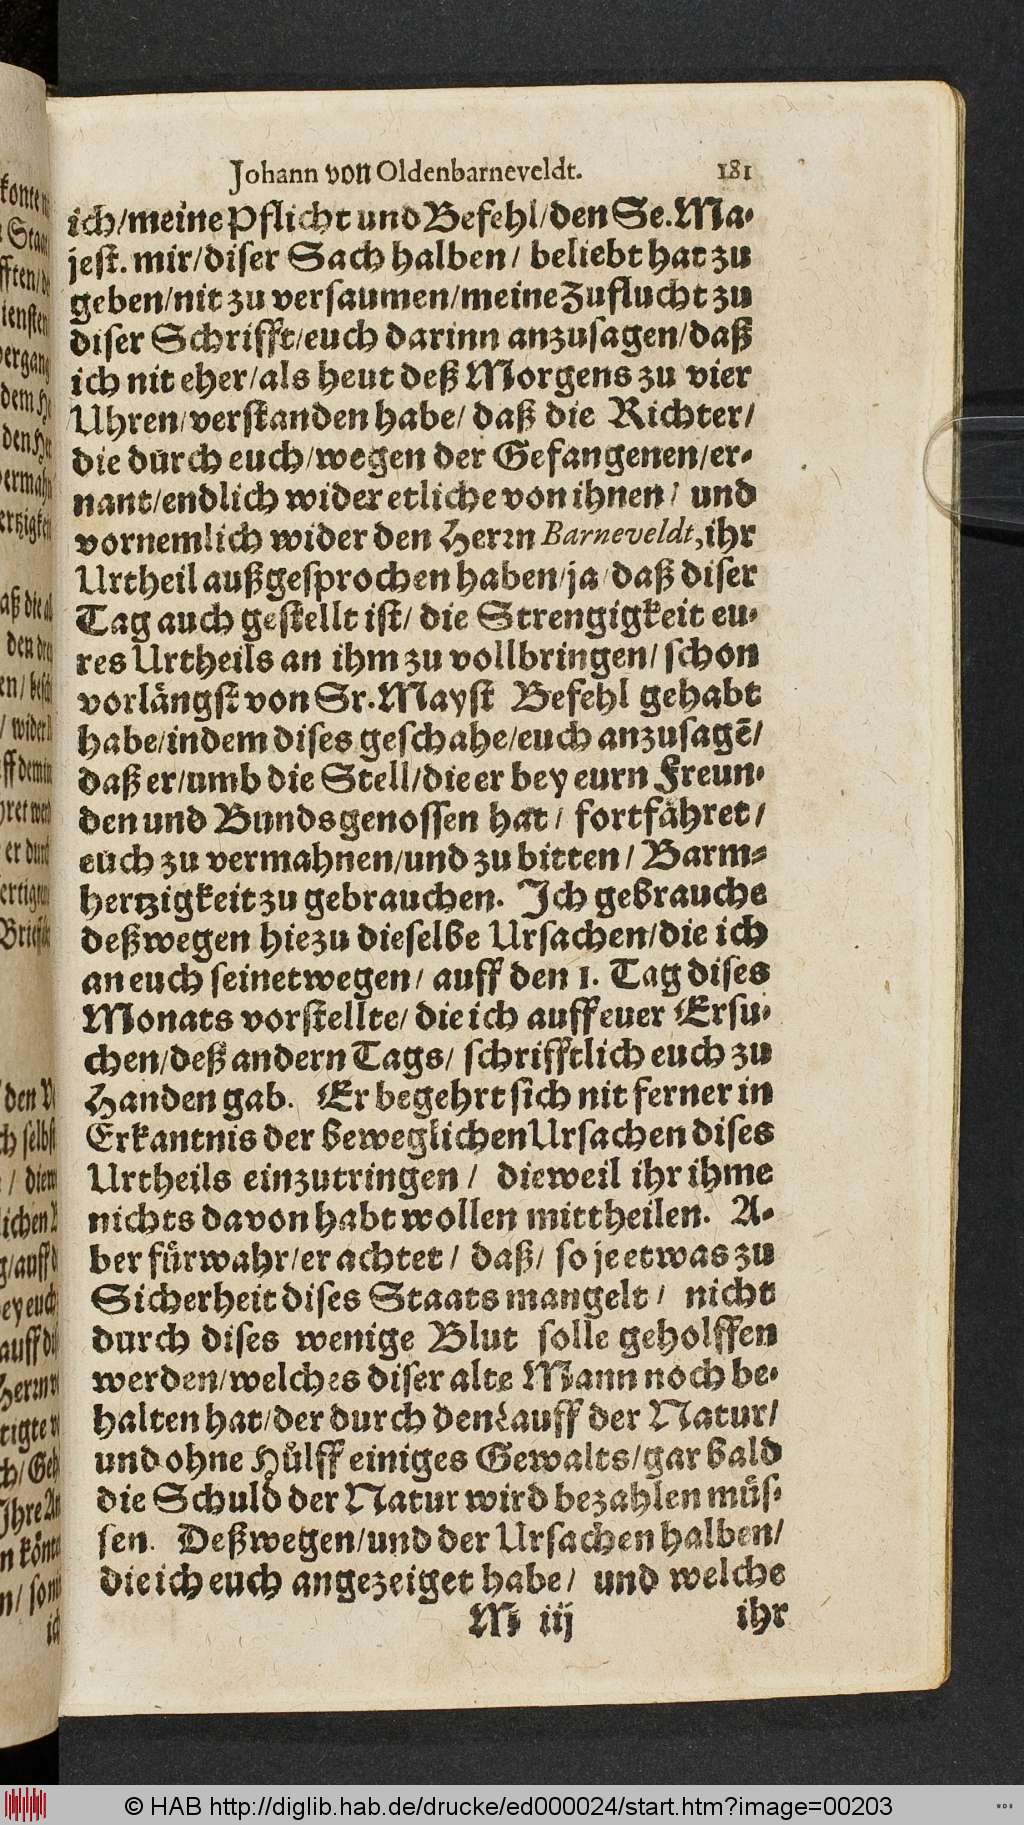 Johann von Oldenbarneveldt. 181
ich/meine Pflicht und Befehl/den Se. Ma-
jest. mir/diser Sach halben/ beliebt hat zu
geben/nit zu versaumen/meine Zuflucht zu
diser Schrifft/euch darinn anzusagen/daß
ich nit eher/als heut deß Morgens zu vier
Uhren/verstanden habe/ daß die Richter/
die durch euch/wegen der Gefangenen/er-
nant/endlich wider etliche von ihnen/ und
vornemlich wider den Herrn Barneveldt, ihr
Urtheil außgesprochen haben/ja/daß diser
Tag auch gestellt ist/ die Strengigkeit eu-
res Urtheils an ihm zu vollbringen/ schon
vorlängst von Sr. Mayst Befehl gehabt
habe/indem dises geschahe/euch anzusagē/
daß er/umb die Stell/die er bey eurn Freun-
den und Bundsgenossen hat/ fortfähret/
euch zu vermahnen/und zu bitten/ Barm-
hertzigkeit zu gebrauchen. Ich gebrauche
deßwegen hiezu dieselbe Ursachen/die ich
an euch seinetwegen/ auff den 1. Tag dises
Monats vorstellte/ die ich auff euer Ersu-
chen/deß andern Tags/ schrifftlich euch zu
Handen gab. Er begehrt sich nit ferner in
Erkantnis der beweglichen Ursachen dises
Urtheils einzutringen/ dieweil ihr ihme
nichts davon habt wollen mittheilen. A-
ber fürwahr/er achtet/ daß/ so je etwas zu
Sicherheit dises Staats mangelt/ nicht
durch dises wenige Blut solle geholffen
werden/welches diser alte Mann noch be-
halten hat/der durch den Lauff der Natur/
und ohne Hülff einiges Gewalts/gar bald
die Schuld der Natur wird bezahlen müs-
sen. Deßwegen/und der Ursachen halben/
die ich euch angezeiget habe/ und welche
M iij ihr
© HAB http://diglib.hab.de/drucke/ed000024/start.htm?image=00203